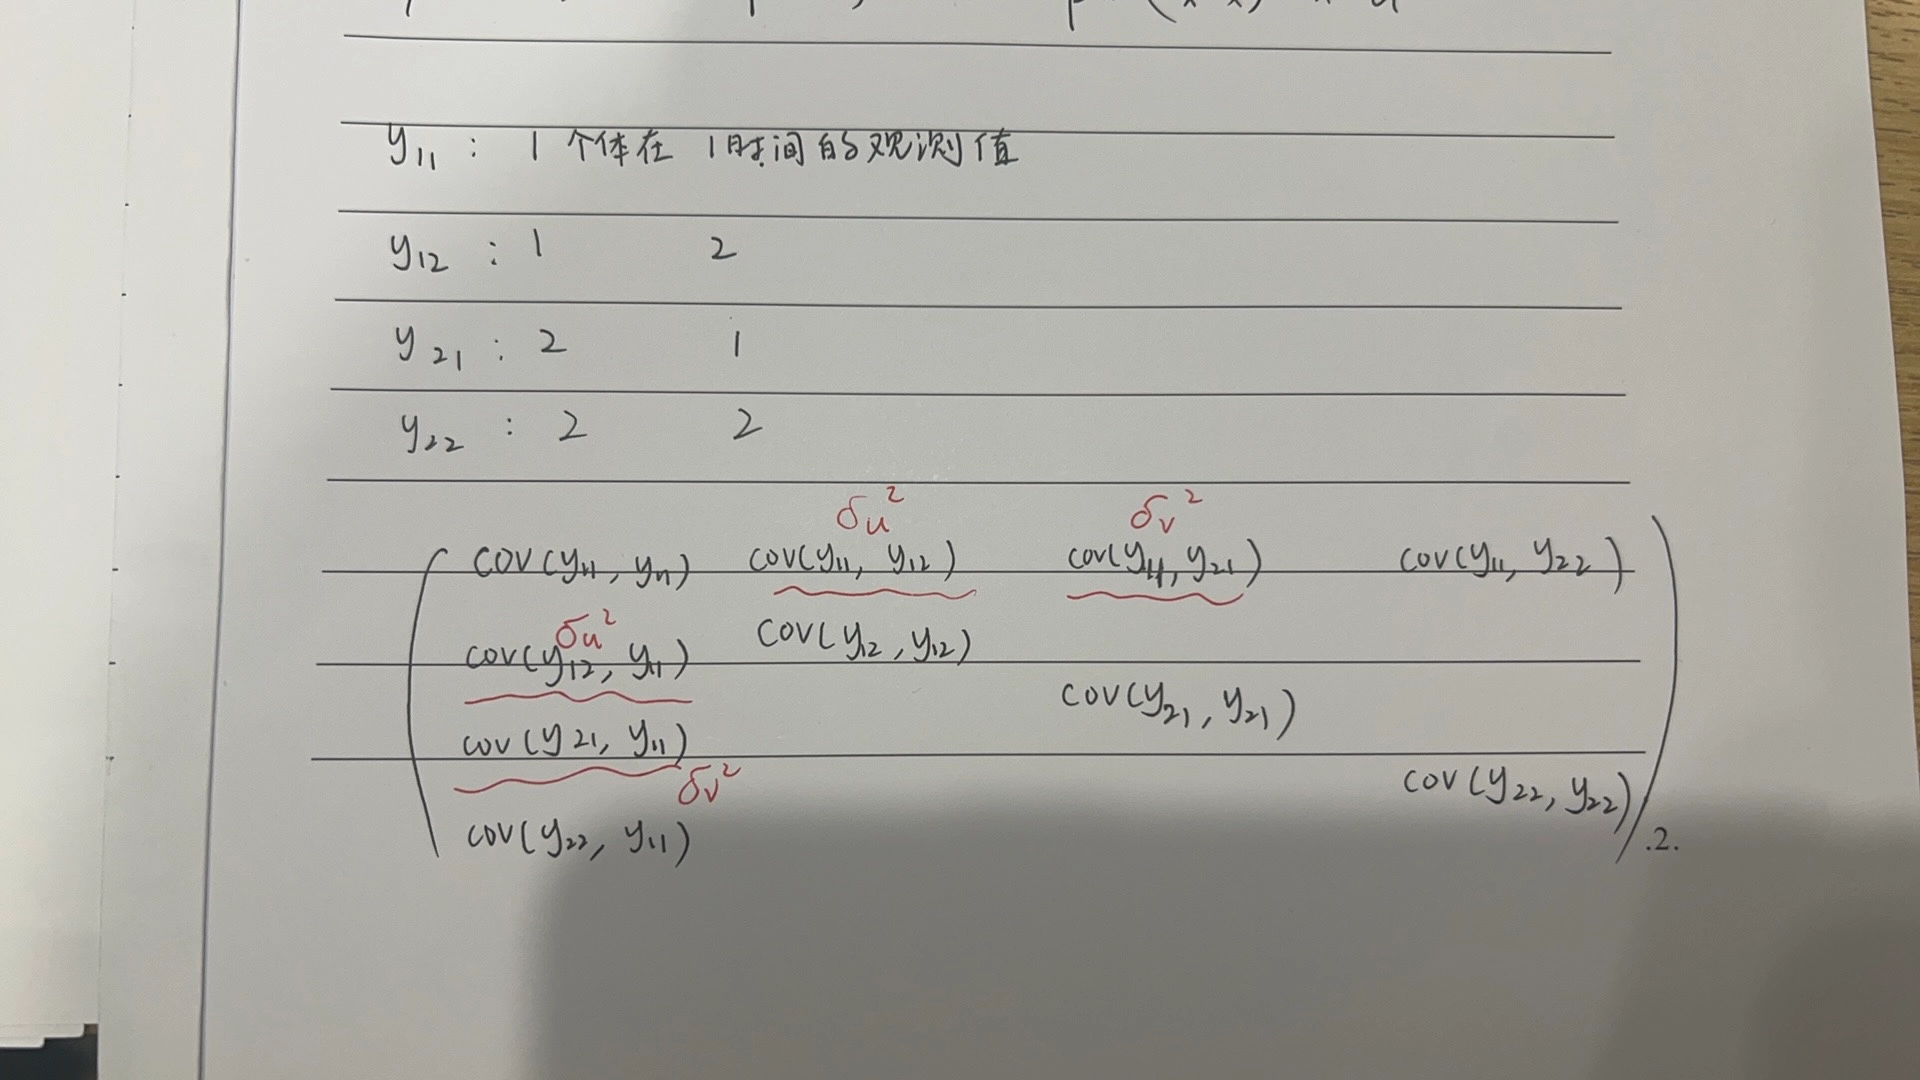 y₁₁ : 1 个体在 1时间的观测值
y₁₂ : 1 2
y₂₁ : 2 1
y₂₂ : 2 2
σu² σv²
cov(y₁₁, y₁₁) cov(y₁₁, y₁₂) cov(y₁₁, y₂₁) cov(y₁₁, y₂₂)
σu²
cov(y₁₂, y₁₁) cov(y₁₂, y₁₂)
cov(y₂₁, y₁₁) cov(y₂₁, y₂₁)
σv²
cov(y₂₂, y₁₁) cov(y₂₂, y₂₂)
.2.